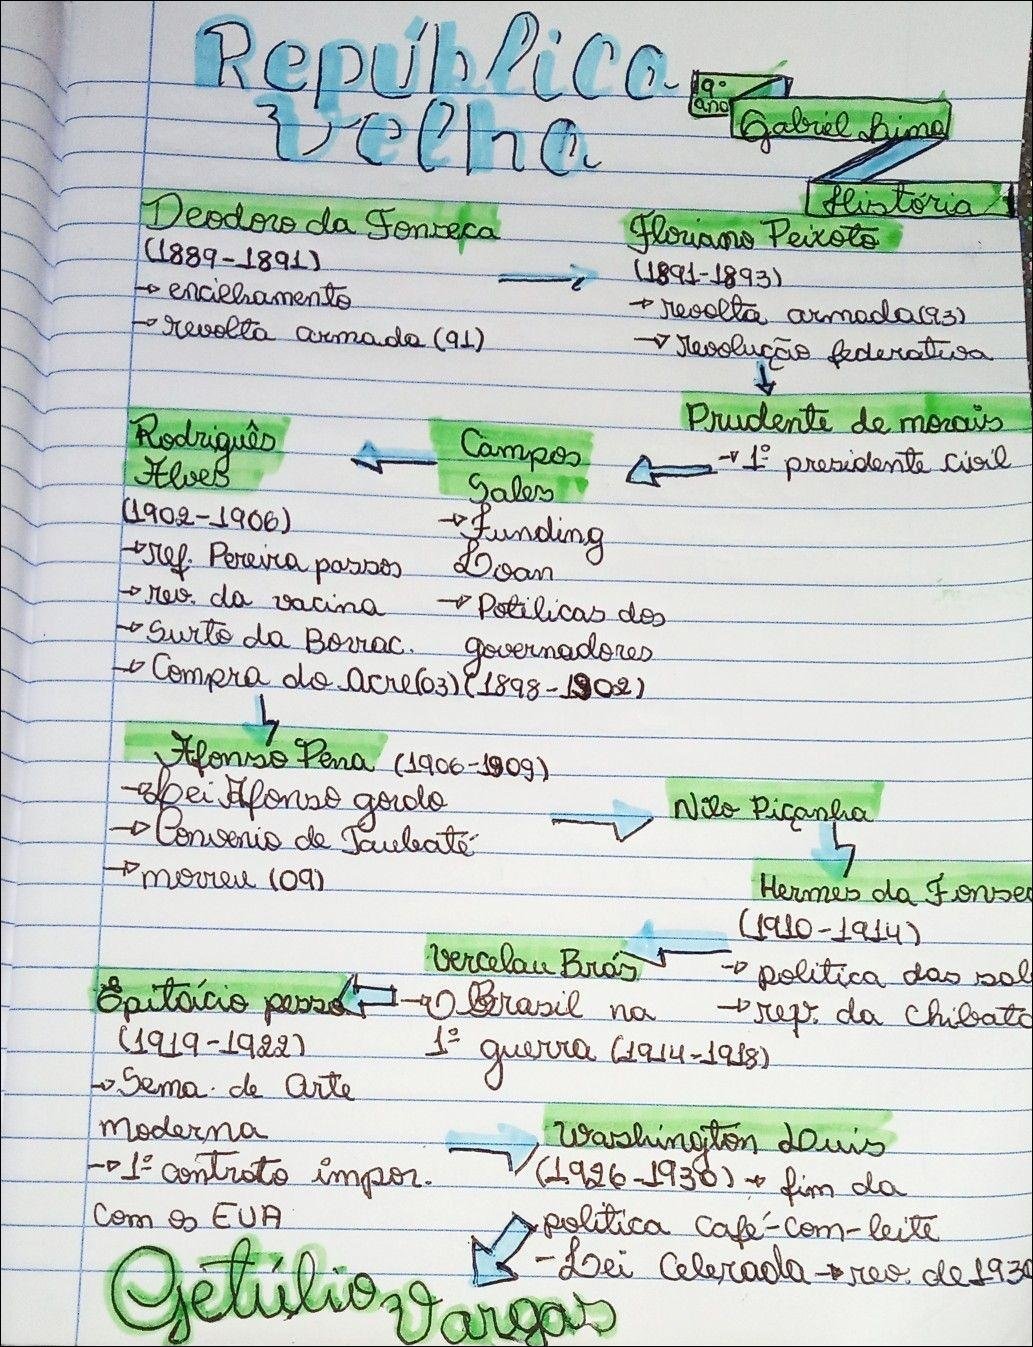 República
Velha
9º
ano
Gabriel Lima
História
Deodoro da Fonseca
(1889-1891)
→ encilhamento
→ revolta armada (91)
Floriano Peixoto
(1891-1893)
→ revolta armada(93)
→ revolução federativa
Prudente de morais
→ 1º presidente civil
Campos
Sales
→ Funding
Loan
→ Potilicas dos
governadores
(1898-1902)
Rodriguês
Alves
(1902-1906)
→ ref. Pereira passos
→ rev. da vacina
→ Surto da Borrac.
→ Compra do Acre(03)
Afonso Pena (1906-1909)
→ Lei Afonso gordo
→ Convenio de Taubaté
→ morreu (09)
Nilo Piçanha
Hermes da Fonsec
(1910-1914)
→ politica das sal
→ rev. da chibata
Vercelau Brás
→ O Brasil na
1º guerra (1914-1918)
Epitácio pesso
(1919-1922)
→ Sema. de Arte
moderna
→ 1º contrato impor.
com os EUA
Washington Luis
(1926-1930) → fim da
politica café-com-leite
- Lei Celerada → rev. de 1930
Getúlio
Vargas